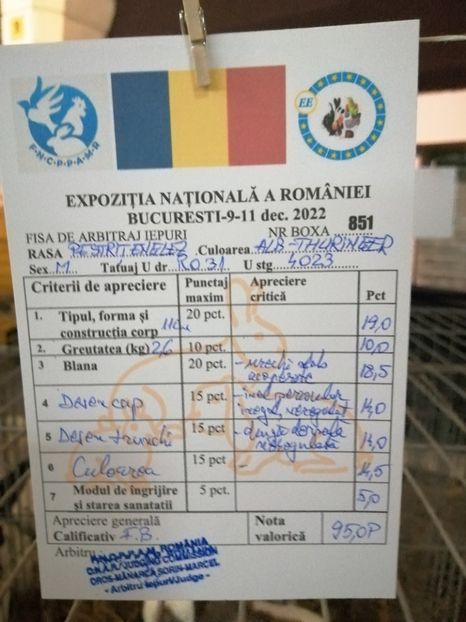 F-N-C-P-P-A-M-R
EE
EXPOZIȚIA NAȚIONALĂ A ROMÂNIEI
BUCURESTI-9-11 dec. 2022
FISA DE ARBITRAJ IEPURI NR BOXA 851
RASA PESTRIT ENGLEZ Culoarea ALB-THURINGER
Sex M Tatuaj U dr RO.31 U stg 4023
Criterii de apreciere Punctaj maxim Apreciere critică Pct
1. Tipul, forma și construcția corp 20 pct. 19,0
2. Greutatea (kg) 2,6 10 pct. 10,0
3 Blana 20 pct. 18,5
4 Desen cap 15 pct. 14,0
5 Desen trunchi 15 pct. 14,0
6 Culoarea 15 pct - 14,5
7 Modul de îngrijire și starea sanatatii 5 pct. 5,0
Apreciere generală Nota
Calificativ F.B. valorică 95,0P
Arbitru
ROMÂNIA
JUDGING COMMISSION
OROS-MĂNĂRCĂ SORIN-MARCEL
- Arbitru Iepuri/Judge -